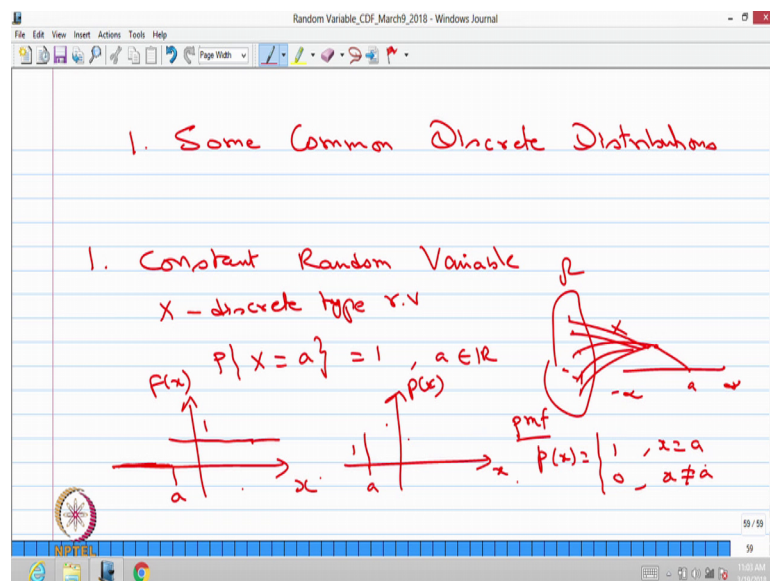 Random Variable_CDF_March9_2018 - Windows Journal
File Edit View Insert Actions Tools Help
Page Width
1. Some Common Discrete Distributions
1. Constant Random Variable
X - discrete type r.v
P{X = a} = 1 , a ∈ ℝ
Ω
X
-∞ a ∞
F(x)
1
a x
p(x)
1
a x
pmf
p(x) = { 1 , x = a
0 , x ≠ a
NPTEL
59 / 59
59
11:03 AM